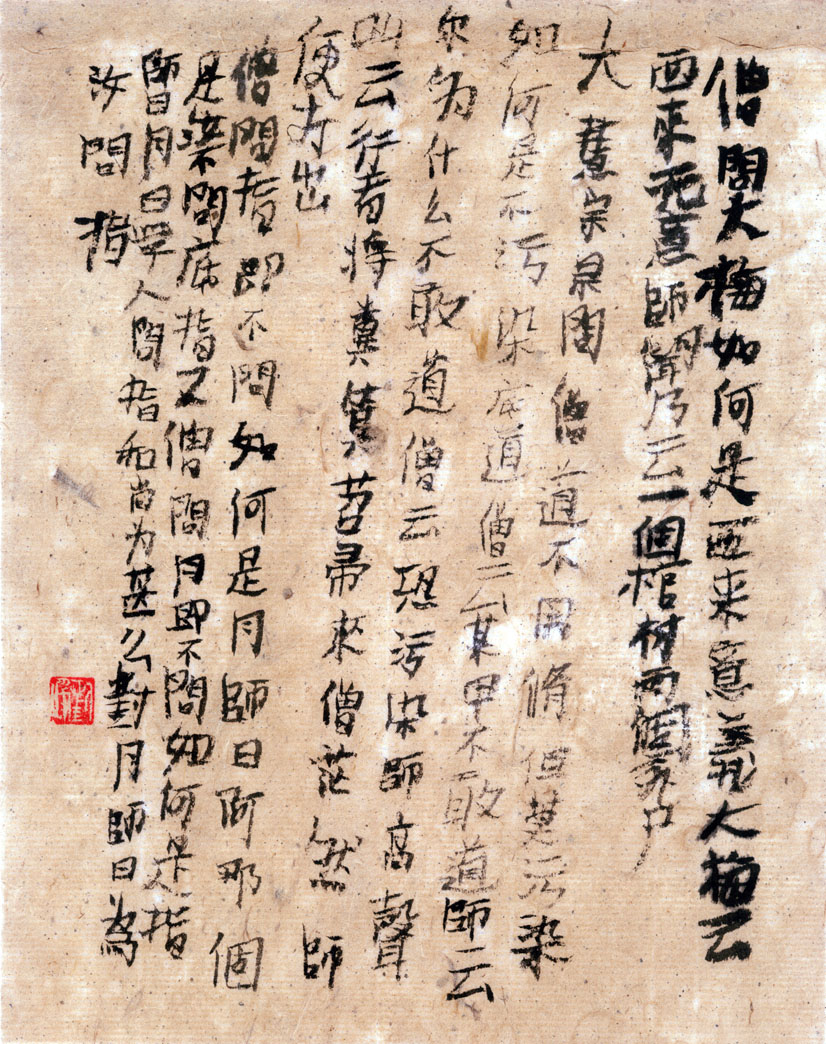 僧問大梅如何是西來意義大梅云
西來无意師聞乃云一個棺材兩個死尸
大慧宗杲問僧道不用脩但莫污染
如何是不污染底道僧云某甲不敢道師云
尔為什么不敢道僧云恐污染師高聲
叫云行者將糞箕苕帚來僧茫然師
便打出
僧問指即不問如何是月師曰阿那個
是汝不問底指又僧問月即不問如何是指
師曰月曰學人問指和尚为甚么對月師曰為
汝問指